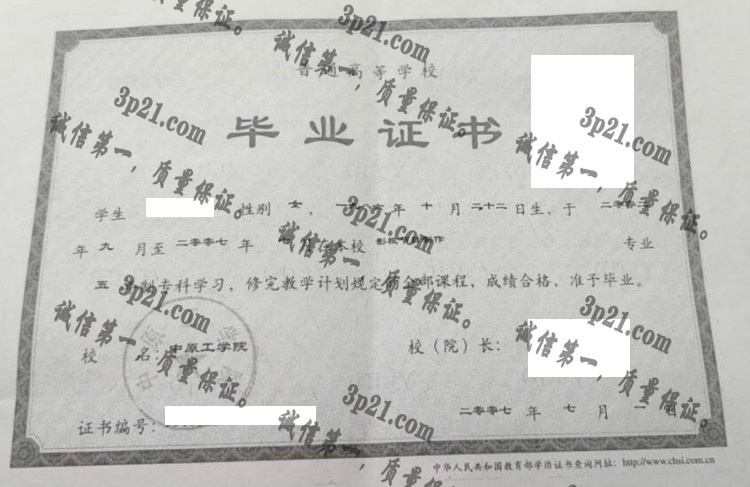 普通高等学校
毕业证书
学生 性别 女， 年 十 月 二十二日生，于
年 九 月至 二零零七 年 本校 影视 制作 专业
五 制专科学习，修完教学计划规定的全部课程，成绩合格，准予毕业。
校 名：中原工学院 校（院）长：
二零零七 年 七 月 一
证书编号：
中华人民共和国教育部学历证书查询网址：http://www.chsi.com.cn
质量保证。
3p21.com
诚信第一，质量保证。
3p21.com
诚信第一，质量保证。
3p21.com
诚信第一，质量保证。
3p21.com
诚信第一，质量保证。
3p21.com
诚信第一，质量保证。
3p21.com
诚信第一，质量保证。
3p21.com
诚信第一，质量保证。